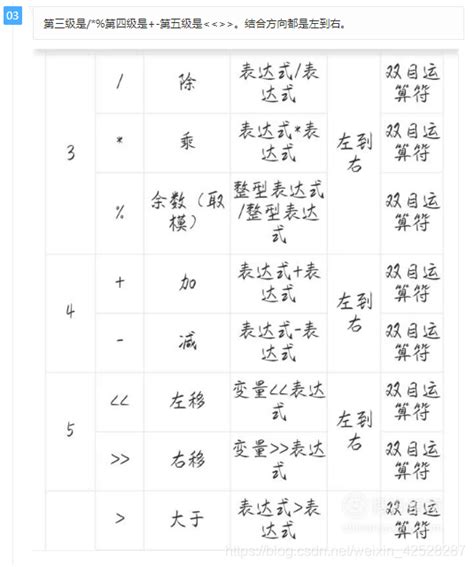 03
第三级是/*%第四级是+-第五级是<<>>。结合方向都是左到右。
/ 除 表达式/表达式 双目运算符
3 * 乘 表达式*表达式 左到右 双目运算符
% 余数（取模） 整型表达式/整型表达式 双目运算符
+ 加 表达式+表达式 双目运算符
4 左到右
- 减 表达式-表达式 双目运算符
<< 左移 变量<<表达式 双目运算符
5 左到右
>> 右移 变量>>表达式 双目运算符
> 大于 表达式>表达式 双目运算符
https://blog.csdn.net/weixin_42528287